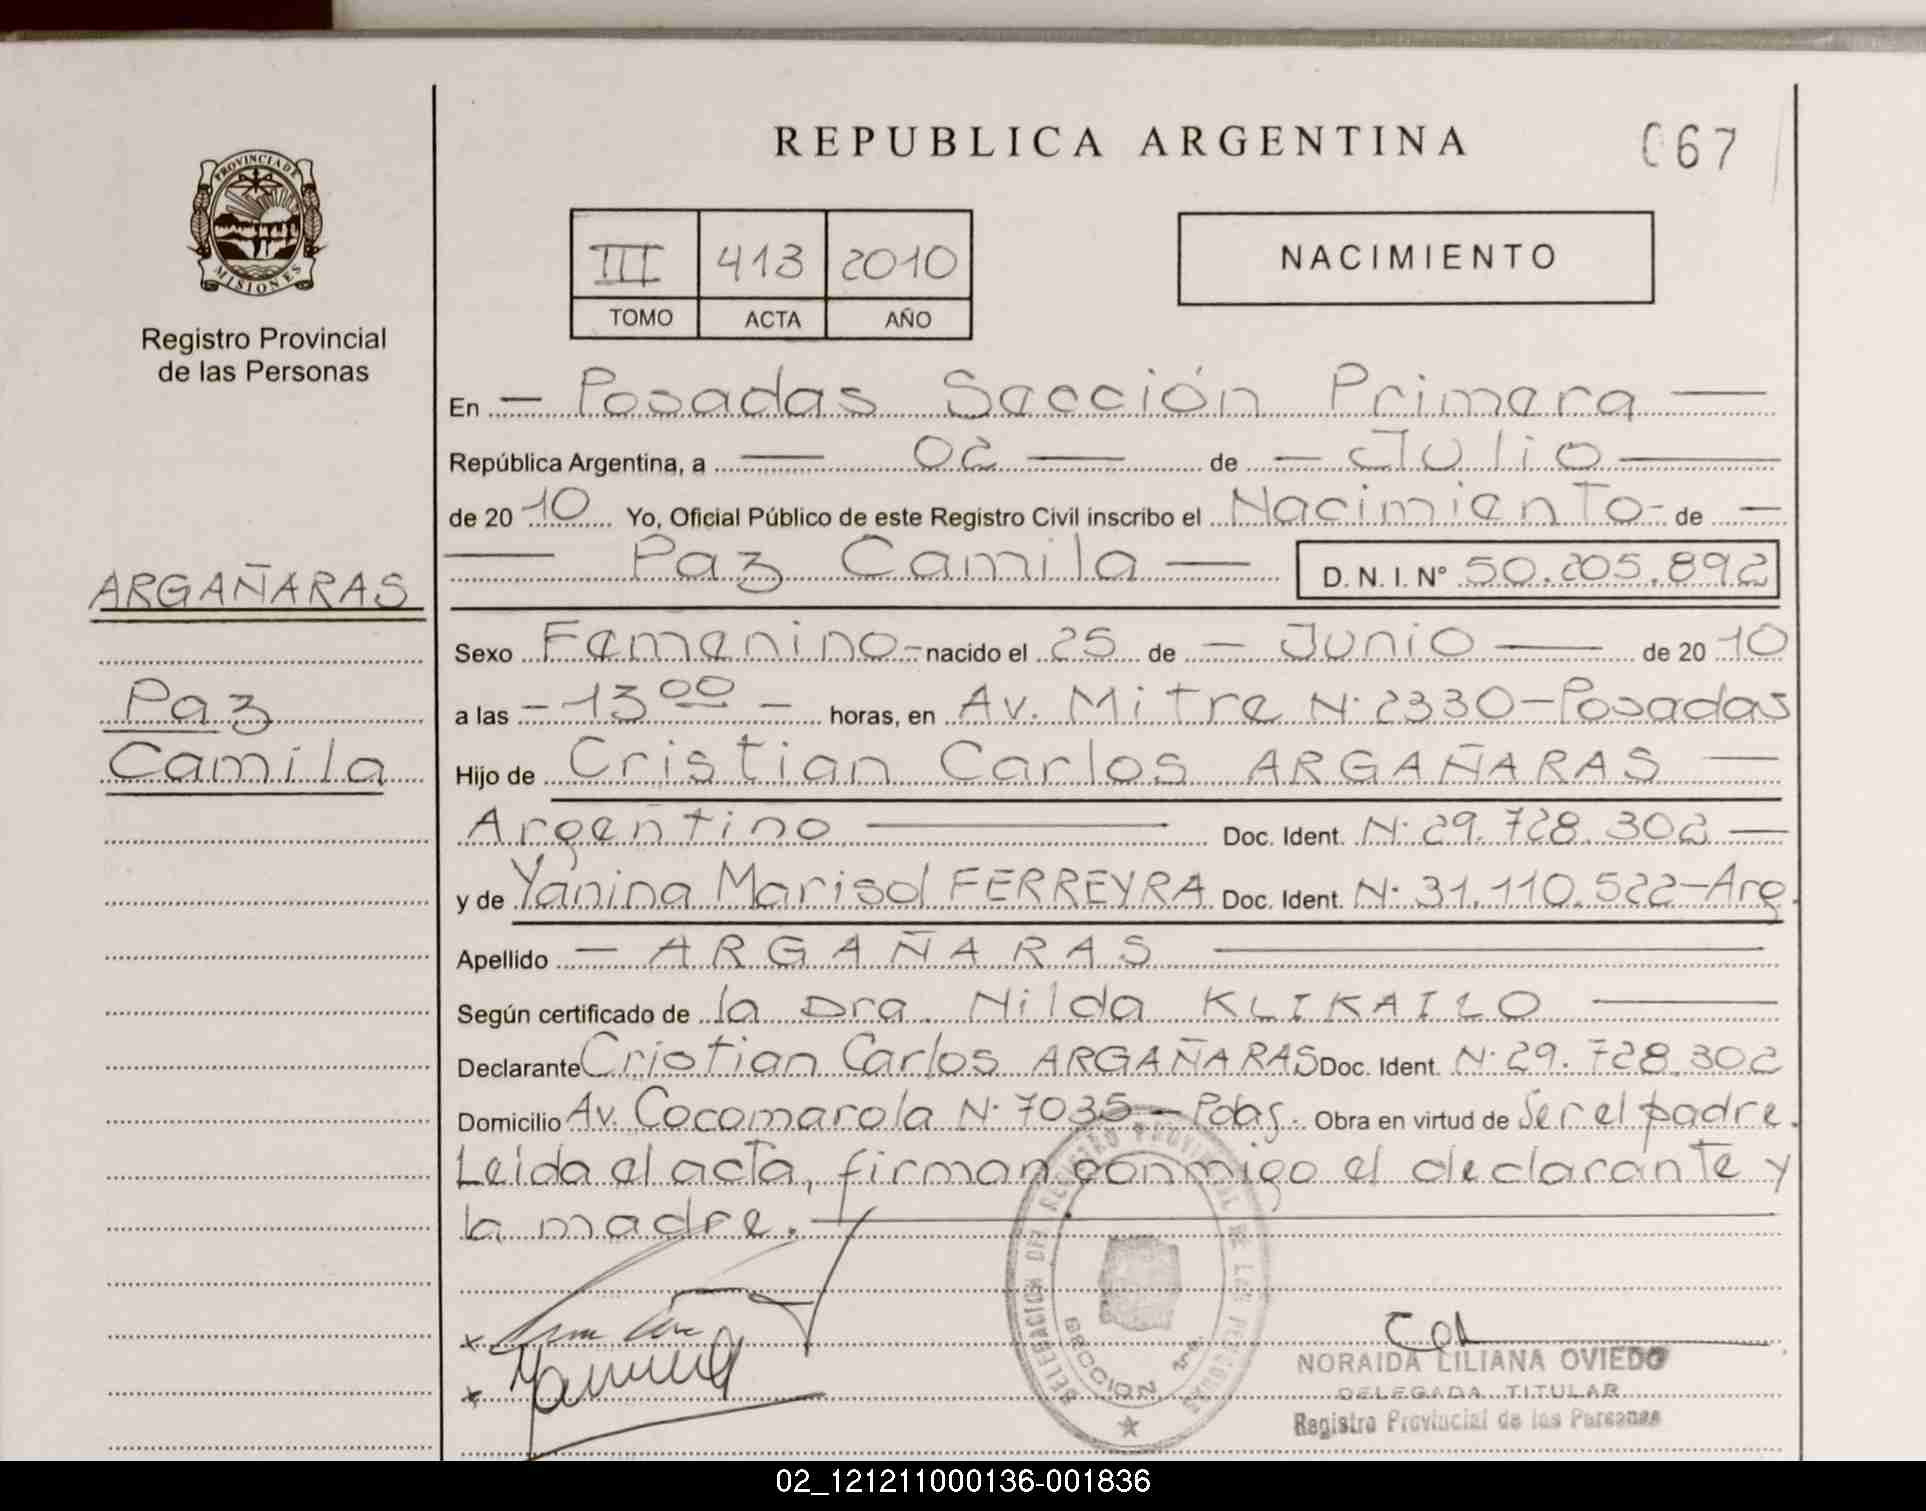 REPUBLICA ARGENTINA
067
PROVINCIA DE
MISIONES
Registro Provincial
de las Personas
III 413 2010
TOMO ACTA AÑO
NACIMIENTO
En — Posadas Sección Primera —
República Argentina, a — 02 — de — Julio —
de 20 10 Yo, Oficial Público de este Registro Civil inscribo el Nacimiento- de —
— Paz Camila — D. N. I. Nº 50.205.892
ARGAÑARAS
Paz
Camila
Sexo Femenino- nacido el 25 de — Junio — de 20 10
a las - 13 00 - horas, en Av. Mitre N· 2330-Posadas
Hijo de Cristian Carlos ARGAÑARAS —
Argentino — Doc. Ident. N· 29.728.302 —
y de Yanina Marisol FERREYRA Doc. Ident. N· 31.110.522-Arg.
Apellido — ARGAÑARAS —
Según certificado de la Dra. Nilda KLIKAILO —
Declarante Cristian Carlos ARGAÑARAS Doc. Ident. N· 29.728.302
Domicilio Av. Cocomarola N· 7035 - Pdas. Obra en virtud de Ser el padre.
Leida el acta, firman conmigo el declarante y
la madre. —
DELEGACION DEL REGISTRO PROVINCIAL DE LAS PERSONAS
SECCION
NORAIDA LILIANA OVIEDO
DELEGADA TITULAR
Registro Provincial de las Personas
02_121211000136-001836